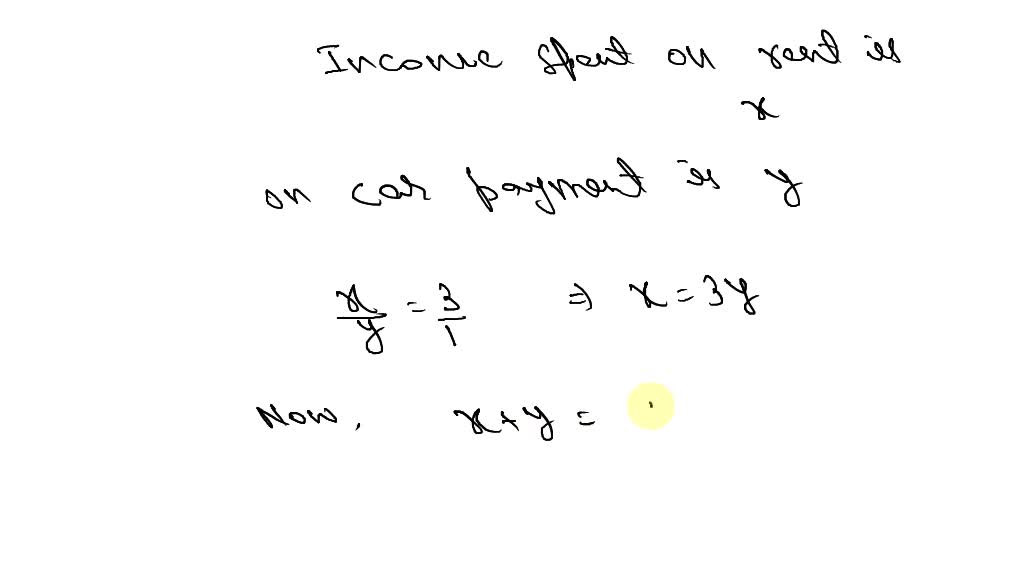 Income spent on rent is
x
on car payment is y
x/y = 3/1 ⇒ x = 3y
Now, x+y =